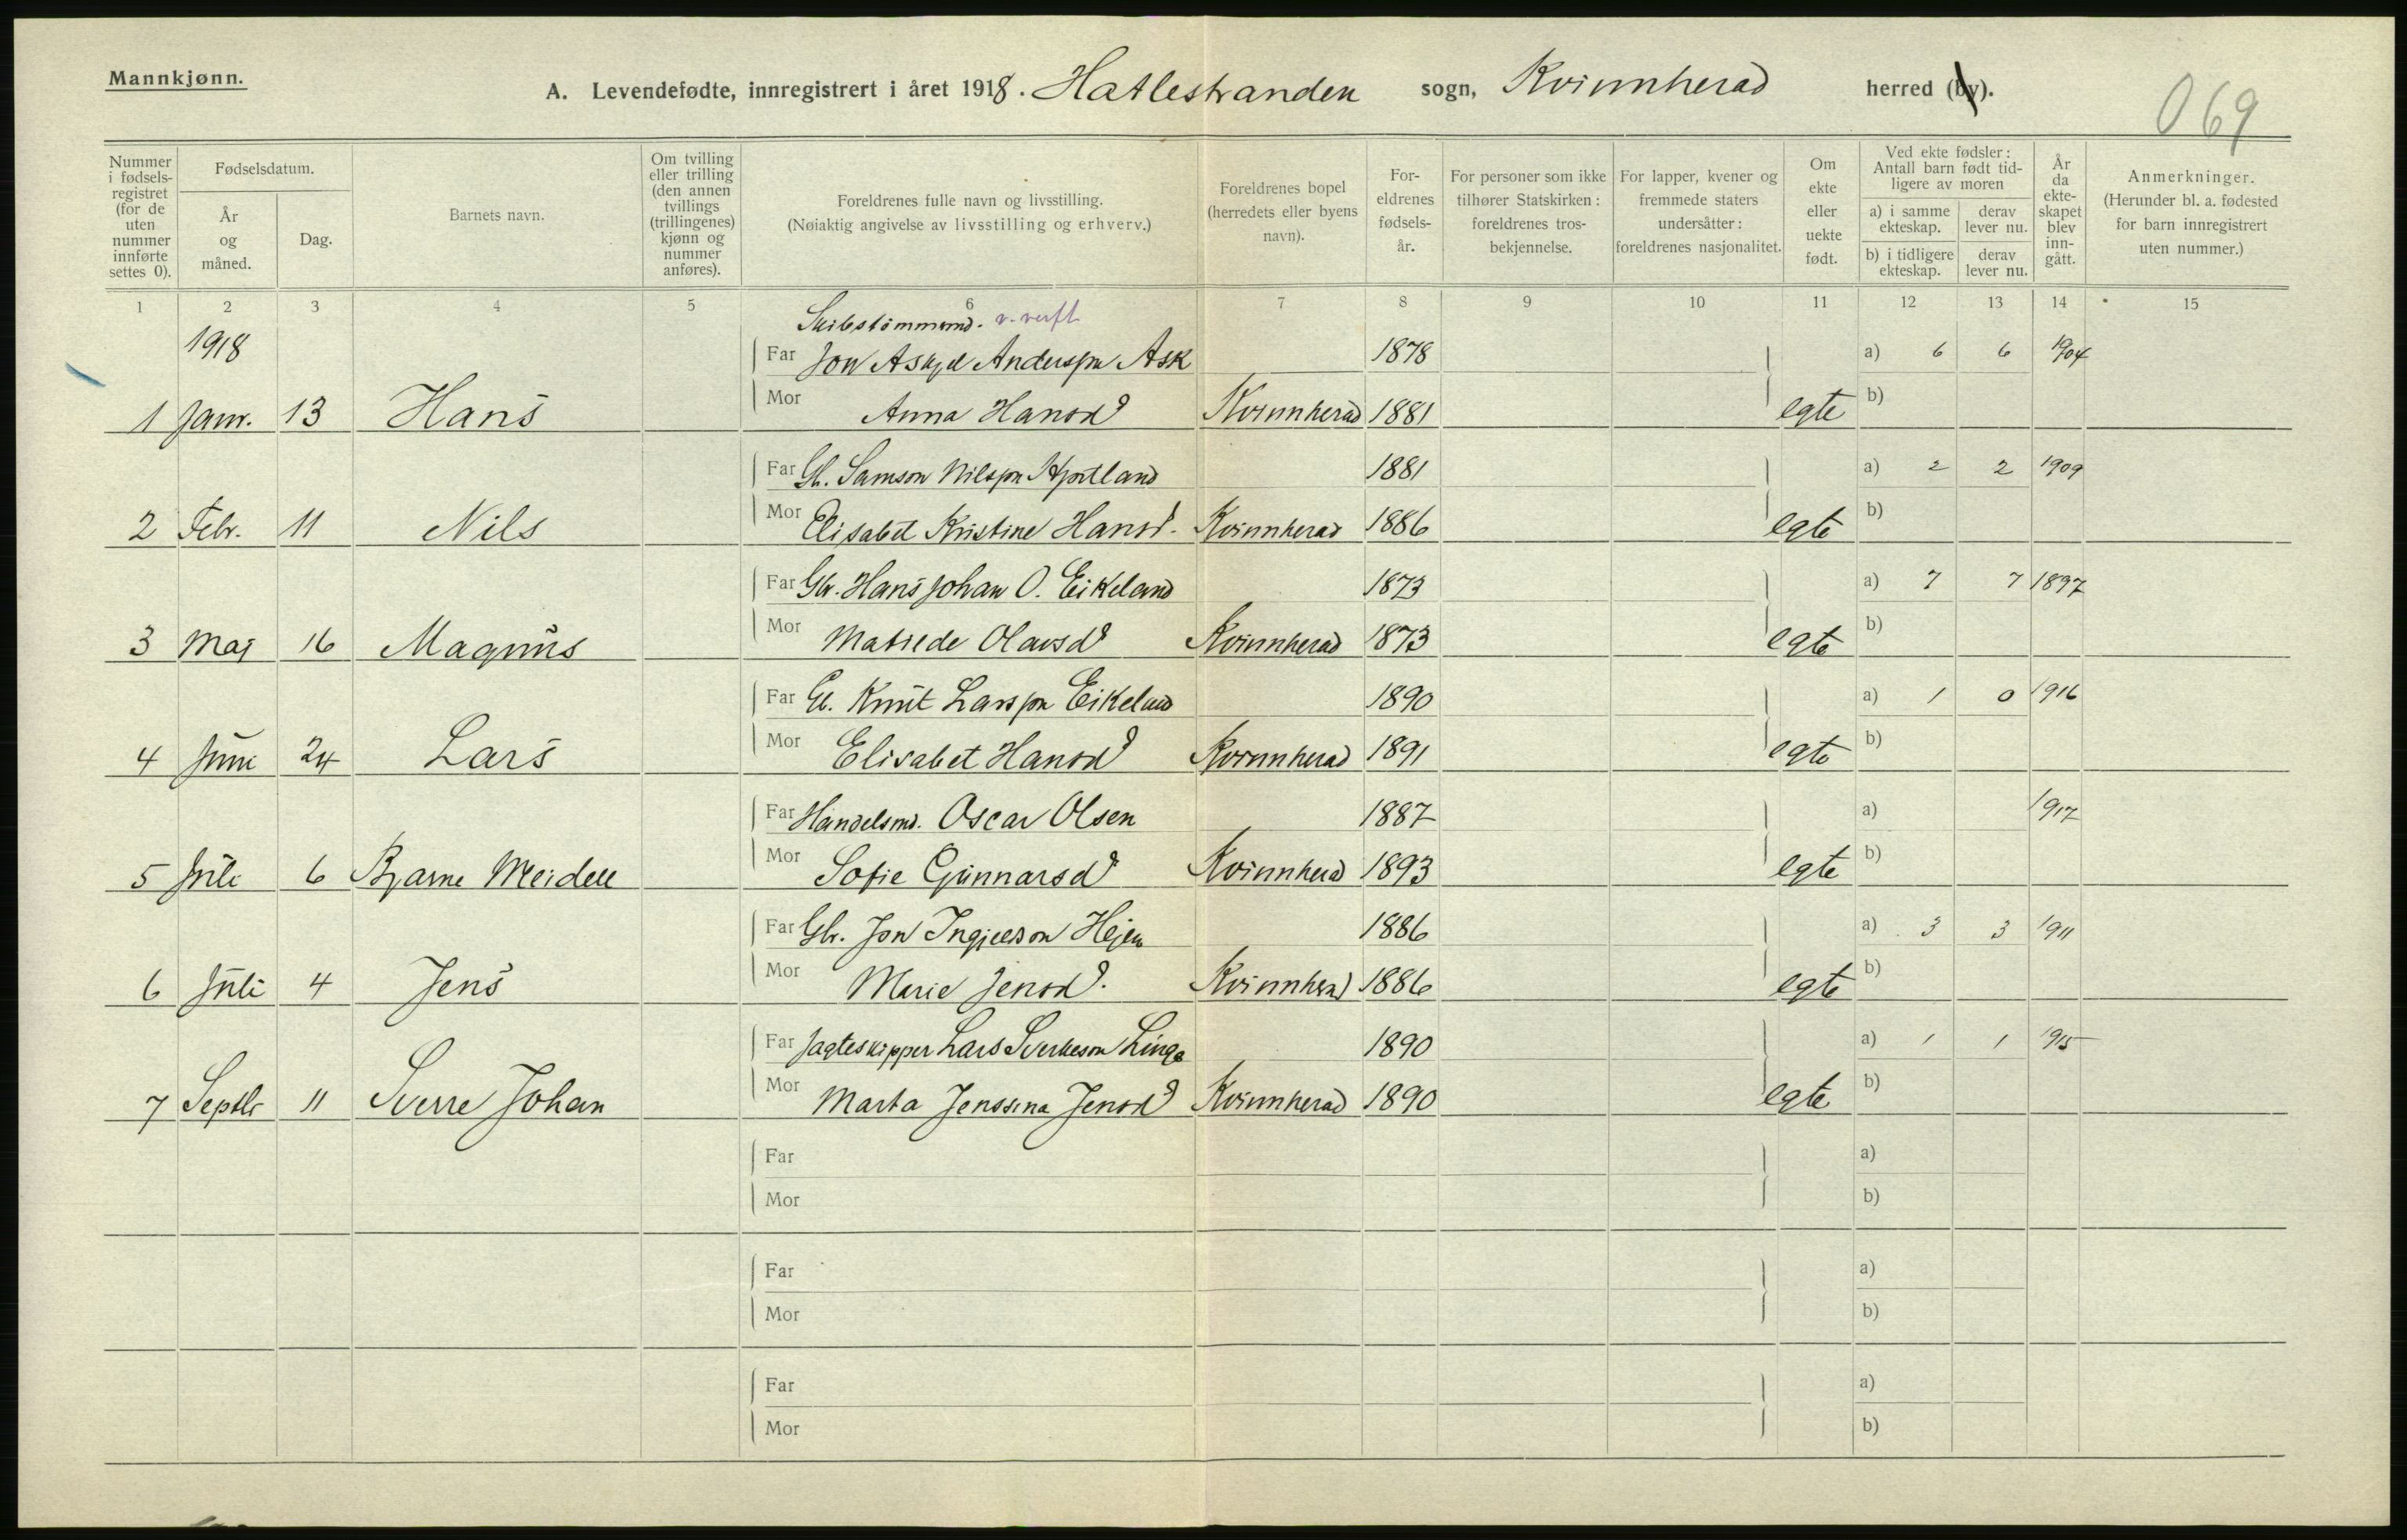 Mannkjønn.
A. Levendefødte, innregistrert i året 1918. Hatlestranden sogn, Kvinnherad herred (by).
069
Nummer i fødselsregistret (for de uten nummer innførte settes 0).
Fødselsdatum.
År og måned.
Dag.
Barnets navn.
Om tvilling eller trilling (den annen tvillings (trillingenes) kjønn og nummer anføres).
Foreldrenes fulle navn og livsstilling.
(Nøiaktig angivelse av livsstilling og erhverv.)
Foreldrenes bopel (herredets eller byens navn).
Foreldrenes fødselsår.
For personer som ikke tilhører Statskirken: foreldrenes trosbekjennelse.
For lapper, kvener og fremmede staters undersåtter: foreldrenes nasjonalitet.
Om ekte eller uekte født.
Ved ekte fødsler: Antall barn født tidligere av moren
a) i samme ekteskap.
derav lever nu.
b) i tidligere ekteskap.
derav lever nu.
År da ekteskapet blev inngått.
Anmerkninger.
(Herunder bl. a. fødested for barn innregistrert uten nummer.)
1 2 3 4 5 6 7 8 9 10 11 12 13 14 15
Skibstømmermd. v. verft.
1918 Far Jon Askjel Anderssøn Ask 1878 a) 6 6 1904
1 Janr. 13 Hans Mor Anna Hansd Kvinnherad 1881 egte b)
Far Gbr. Samson Nilssøn 1881 a) 2 2 1909
2 Febr. 11 Nils Mor Elisabet Kristine Hansd. Kvinnherad 1886 egte b)
Far Gbr. Hans Johan O. Eikeland 1873 a) 7 7 1897
3 Maj 16 Magnus Mor Matilde Olavsd Kvinnherad 1873 egte b)
Far Gbr. Knut Larssøn Eikeland 1890 a) 1 0 1916
4 Juni 24 Lars Mor Elisabet Hansd Kvinnherad 1891 egte b)
Far Handelsmd. Oscar Olsen 1887 a) 1917
5 Juli 6 Bjarne Meidell Mor Sofie Gunnarsd Kvinnherad 1893 egte b)
Far Gbr. Jon Ingjeldson Hejen 1886 a) 3 3 1911
6 Juli 4 Jens Mor Marie Jensd. Kvinnherad 1886 egte b)
Far Jagteskipper Lars Sverkeson Linga 1890 a) 1 1 1915
7 Septbr 11 Sverre Johan Mor Marta Jenssina Jensd Kvinnherad 1890 egte b)
Far a)
Mor b)
Far a)
Mor b)
Far a)
Mor b)